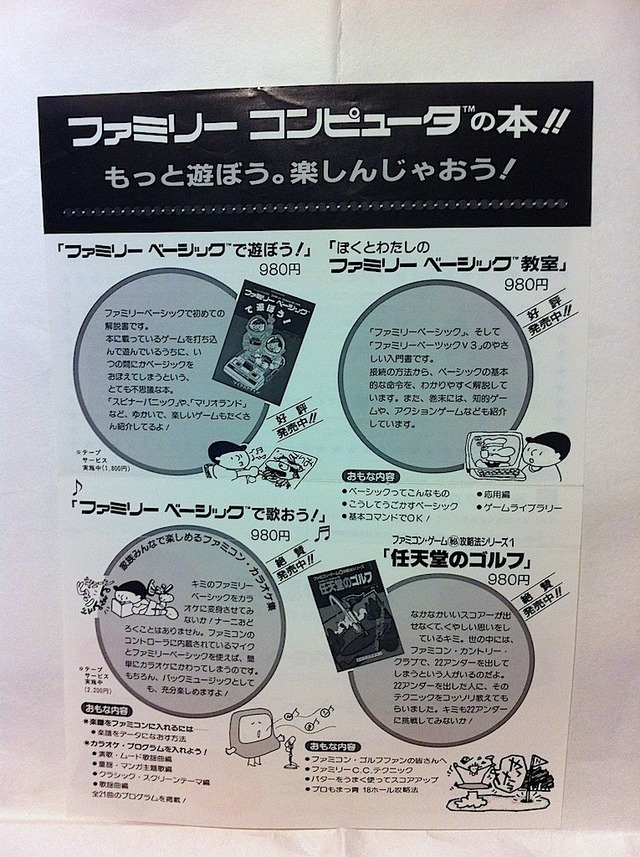 ファミリー コンピュータ™の本!!
もっと遊ぼう。楽しんじゃおう!
「ファミリー ベーシック™で遊ぼう!」
980円
ファミリーベーシックで初めての
解説書です。
本に載っているゲームを打ち込
んで遊んでいるうちに、い
つの間にかベージックを
おぼえてしまうという、
とても不思議な本。
「スピナーパニック」や、「マリオランド」
など、ゆかいで、楽しいゲームもたくさ
ん紹介してるよ!
ファミリー ベーシック
で遊ぼう!
好評
発売中!!
*テープ
サービス
実施中(1,800円)
「ぼくとわたしの
ファミリー ベーシック™教室」
980円
好評
発売中!!
「ファミリーベーシック」、そして
「ファミリーベーツックv3」のやさ
しい入門書です。
接続の方法から、ベーシックの基本
的な命令を、わかりやすく解説して
います。また、巻末には、知的ゲ
ームや、アクションゲームなども紹介
しています。
おもな内容
●ベーシックってこんなもの
●こうしてうごかすベーシック
●基本コマンドでOK!
●応用編
●ゲームライブラリー
「ファミリー ベーシック™で歌おう!」
980円
絶賛
発売中!!
家族みんなで楽しめるファミコン・カラオケ集
キミのファミリー
ベーシックをカラ
オケに変身させてみ
ないか!ナーニおど
ろくことはありません。ファミコンの
コントローラに内蔵されているマイク
とファミリーベーシックを使えば、簡
単にカラオケにかわってしまうのです。
もちろん、バックミュージックとして
も、充分楽しめますよ!
*テープ
サービス
実施中
(2,200円)
おもな内容
*楽譜をファミコンに入れるには……
●楽譜をデータになおす方法
*カラオケ・プログラムを入れよう!
●演歌・ムード歌謡曲編
●童謡・マンガ主題歌編
●クラシック・スクリーンテーマ編
●歌謡曲編
全21曲のプログラムを掲載!
ファミコン・ゲーム㊙攻略法シリーズ1
「任天堂のゴルフ」
980円
絶賛
発売中!!
ファミコン・ゲーム㊙攻略法シリーズ
任天堂のゴルフ
なかなかいいスコアーが出
せなくて、くやしい思いをし
ているキミ。世の中には、
ファミコン・カントリー・
クラブで、22アンダーを出して
しまうという人がいるのだよ。
22アンダーを出した人に、その
テクニックをコッソリ教えても
らいました。キミも22アンダー
に挑戦してみないか!
おもな内容
●ファミコン・ゴルフファンの皆さんへ
●ファミリーC.C.テクニック
●パターをうまく使ってスコアアップ
●プロもまっ青 18ホール攻略法